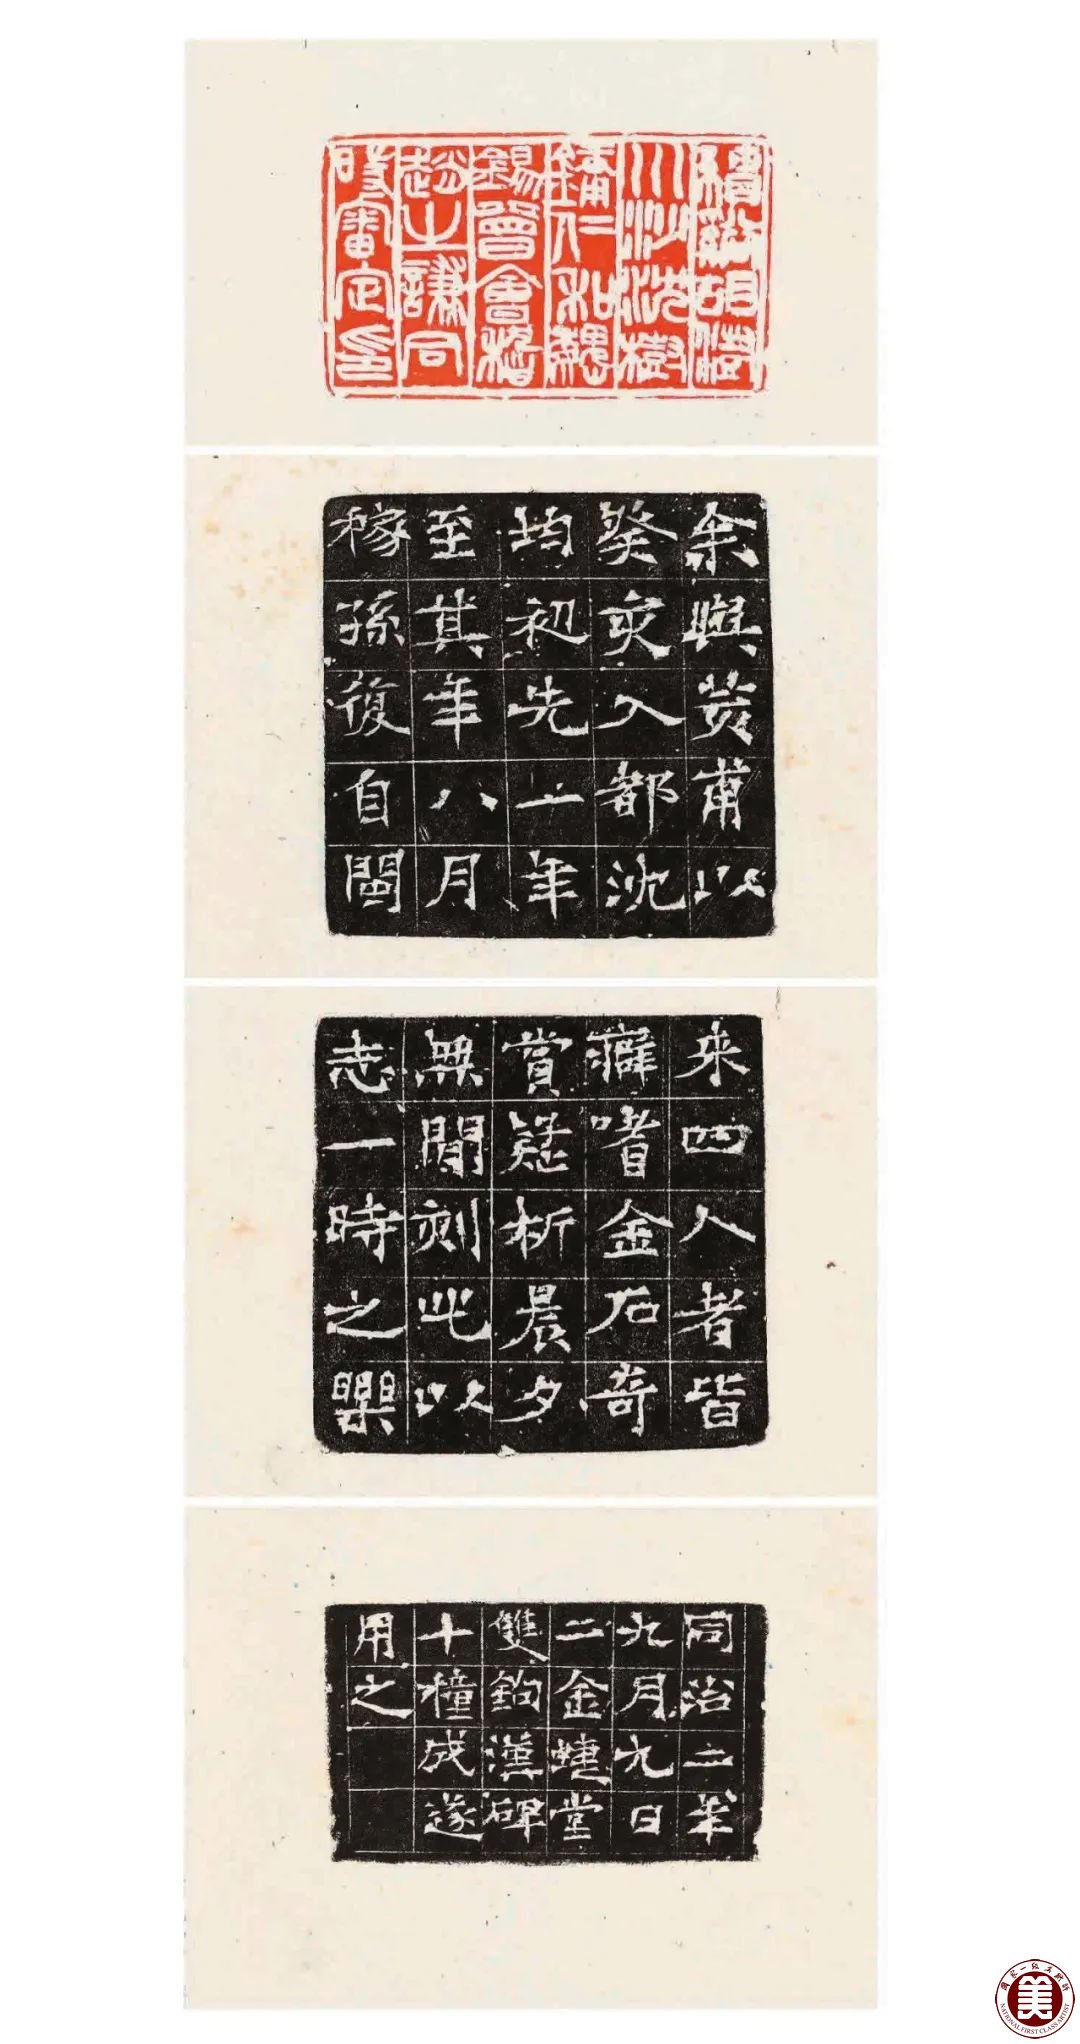 績谿胡澍
川沙沈樹
鏞仁和魏
錫曾會稽
趙之謙同
時審定印
余與荄甫以
癸亥入都沈
均初先一年
至其年八月
稼孫復自閩
來四人者皆
癖嗜金石奇
賞疑析晨夕
無閒刻此以
志一時之樂
同治二年
九月九日
二金蜨堂
雙鉤漢碑
十種成遂
用之
國家一級美術師
美
NATIONAL FIRST CLASS ARTIST